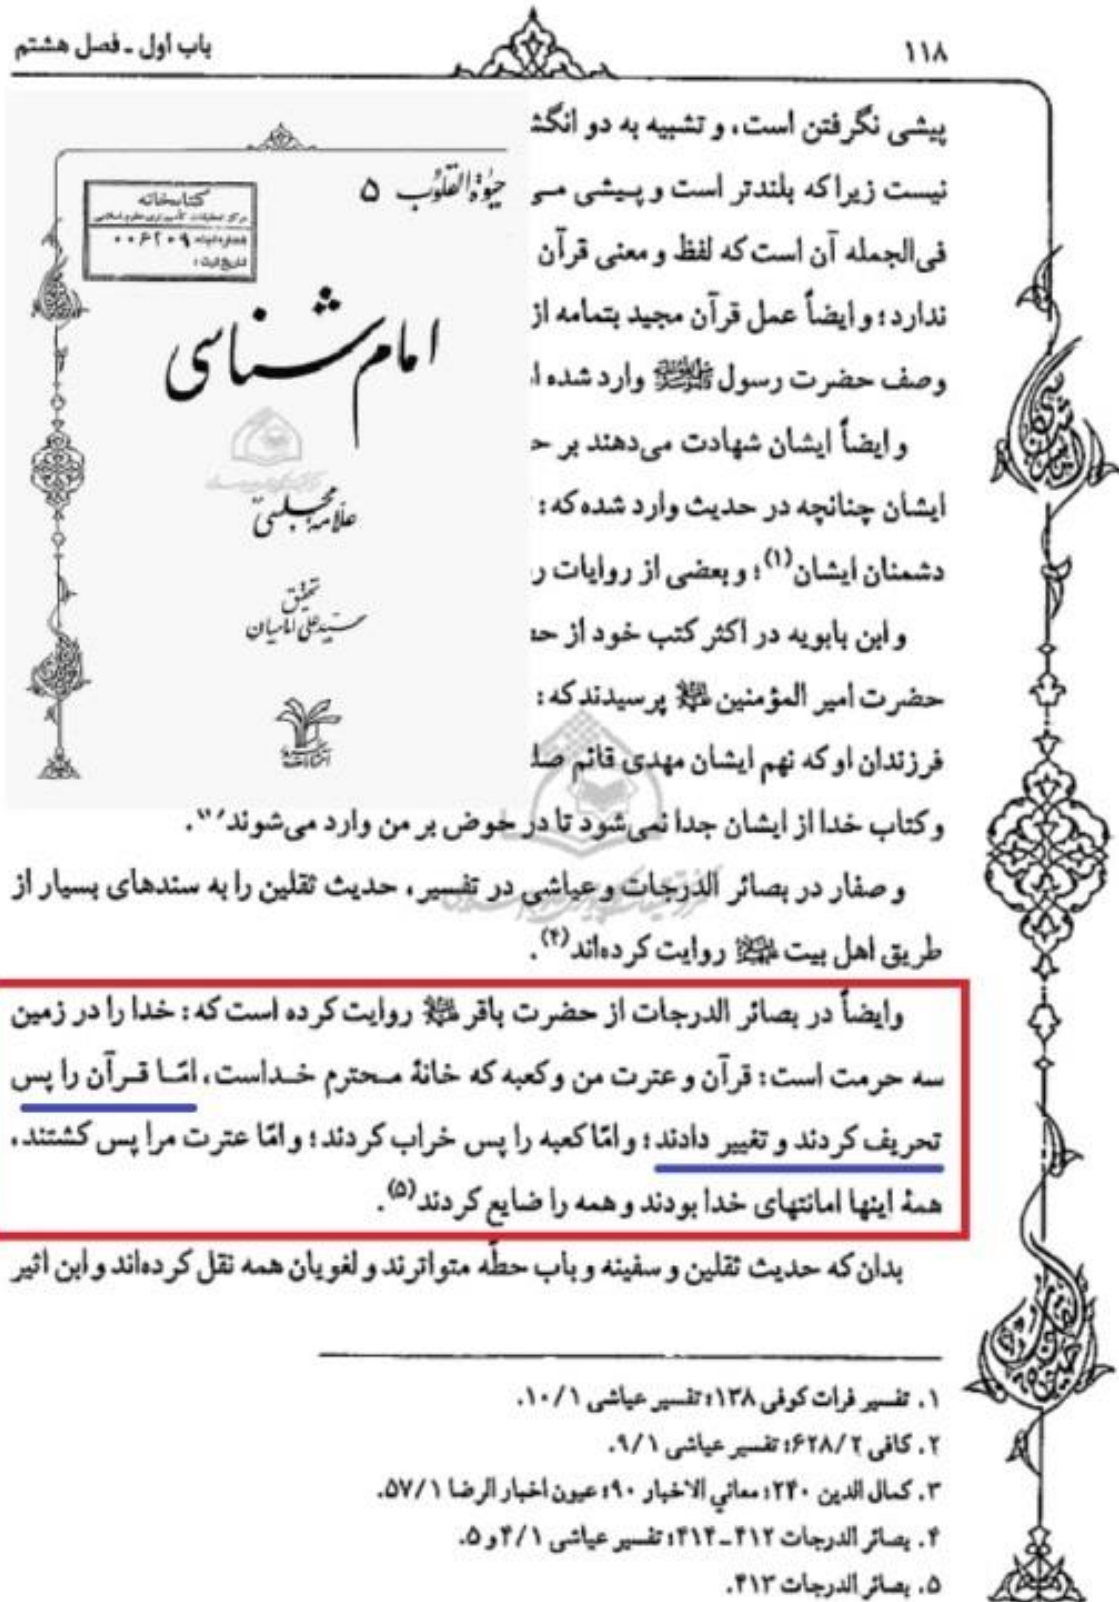 ۱۱۸
باب اول ـ فصل هشتم
پیشی نگرفتن است، و تشبیه به دو انگش
نیست زیرا که بلندتر است و پیشی می
فی‌الجمله آن است که لفظ و معنی قرآن
ندارد؛ و ایضاً عمل قرآن مجید بتمامه از
وصف حضرت رسول ﷺ وارد شده ا
و ایضاً ایشان شهادت می‌دهند بر ح
ایشان چنانچه در حدیث وارد شده که:
دشمنان ایشان(۱)؛ و بعضی از روایات ر
و ابن بابویه در اکثر کتب خود از حض
حضرت امیر المؤمنین علیه السلام پرسیدند که:
فرزندان او که نهم ایشان مهدی قائم صل
و کتاب خدا از ایشان جدا نمی‌شود تا در حوض بر من وارد می‌شوند.
و صفار در بصائر الدرجات و عیاشی در تفسیر، حدیث ثقلین را به سندهای بسیار از
طریق اهل بیت علیهم السلام روایت کرده‌اند(۴).
وایضاً در بصائر الدرجات از حضرت باقر علیه السلام روایت کرده است که: خدا را در زمین
سه حرمت است: قرآن و عترت من و کعبه که خانهٔ محترم خداست، امّا قرآن را پس
تحریف کردند و تغییر دادند؛ و امّا کعبه را پس خراب کردند؛ و امّا عترت مرا پس کشتند،
همهٔ اینها امانتهای خدا بودند و همه را ضایع کردند(۵).
بدان که حدیث ثقلین و سفینه و باب حطّه متواترند و لغویان همه نقل کرده‌اند و ابن اثیر
۱. تفسیر فرات کوفی ۱۳۸؛ تفسیر عیاشی ۱۰/۱.
۲. کافی ۶۲۸/۲؛ تفسیر عیاشی ۹/۱.
۳. کمال الدین ۲۴۰؛ معاني الاخبار ۹۰؛ عیون اخبار الرضا ۵۷/۱.
۴. بصائر الدرجات ۴۱۲ـ۴۱۴؛ تفسیر عیاشی ۴/۱ و ۵.
۵. بصائر الدرجات ۴۱۳.
حیوة القلوب ۵
کتابخانه
مرکز تحقیقات کامپیوتری علوم اسلامی
شماره ثبت: ۰۰۶۲۰۹
تاریخ ثبت:
امام شناسی
علّامه مجلسی
تحقیق
سیّد علی امامیان